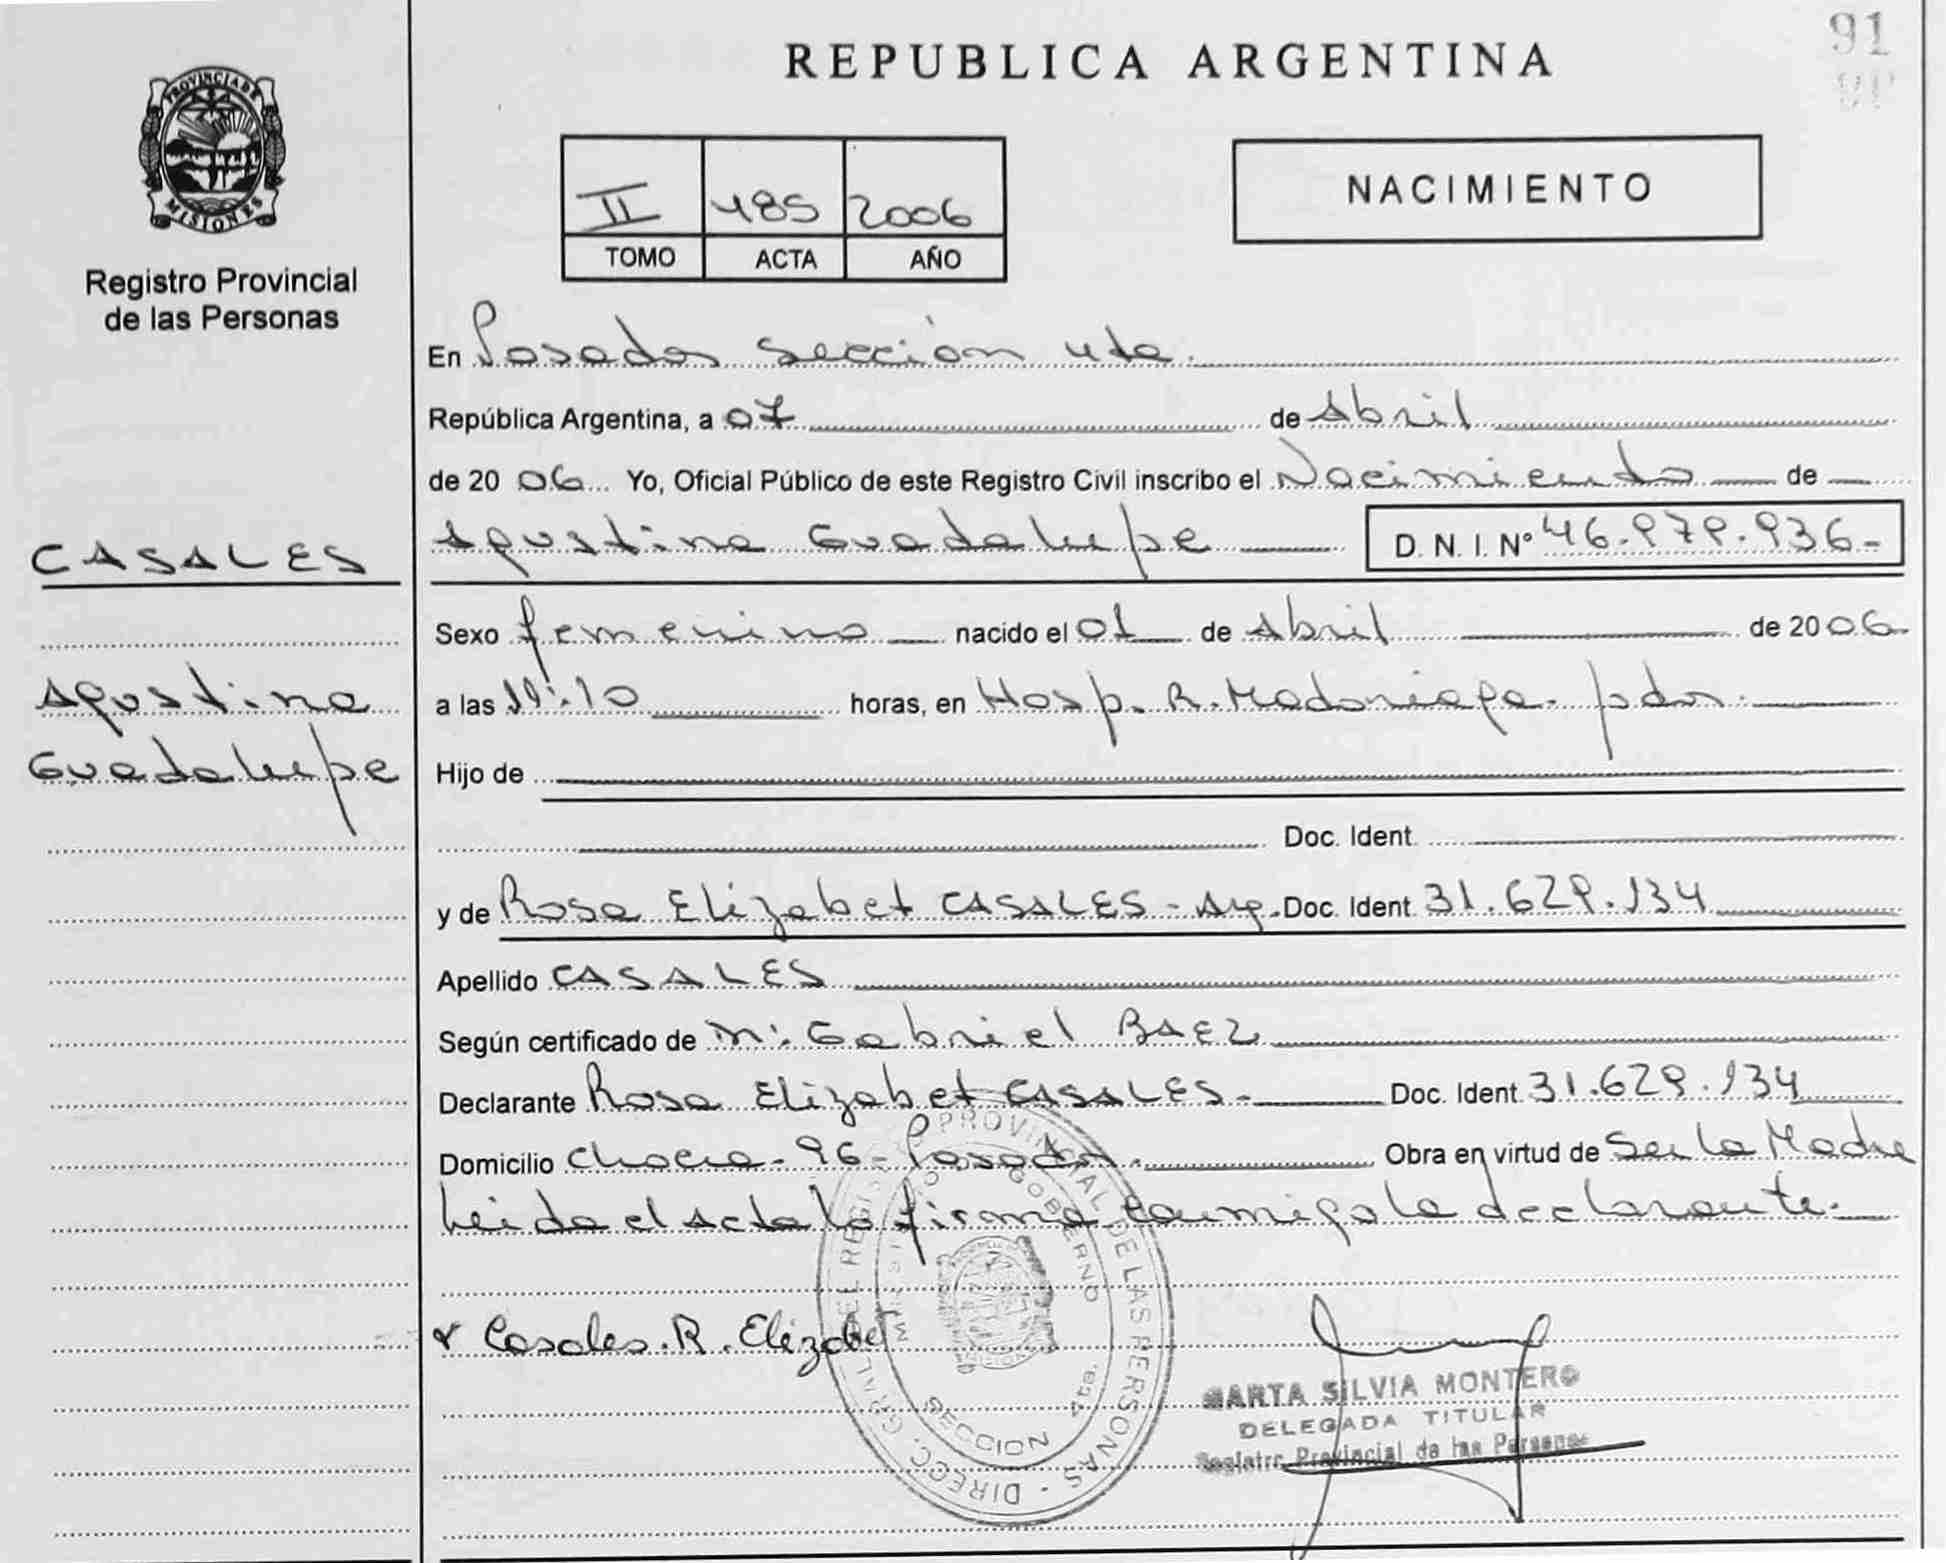 91
REPUBLICA ARGENTINA
PROVINCIA DE
MISIONES
Registro Provincial
de las Personas
NACIMIENTO
II 485 2006
TOMO ACTA AÑO
En Posadas sección 4ta.
República Argentina, a 07 de Abril
de 20 06 Yo, Oficial Público de este Registro Civil inscribo el Nacimiento de
CASALES
Agustina Guadalupe D. N. I. Nº 46.979.936-
Sexo femenino nacido el 01 de Abril de 20 06
Agustina
a las 11:10 horas, en Hosp. R. Madariaga- pdas.
Guadalupe
Hijo de
Doc. Ident.
y de Rosa Elizabet CASALES - Arg. Doc. Ident 31.629.134
Apellido CASALES
Según certificado de M: Gabriel BAEZ
Declarante Rosa Elizabet CASALES - Doc. Ident. 31.629.134
Domicilio 96 - Posadas. Obra en virtud de Ser la Madre
Leida el Acta la firma conmigo la declarante.
Casales. R. Elizabet
DIRECC. GRAL. DEL REGISTRO PROVINCIAL DE LAS PERSONAS
GOBIERNO
MISIONES
SECCION 4ta.
MARTA SILVIA MONTERO
DELEGADA TITULAR
Registro Provincial de las Personas